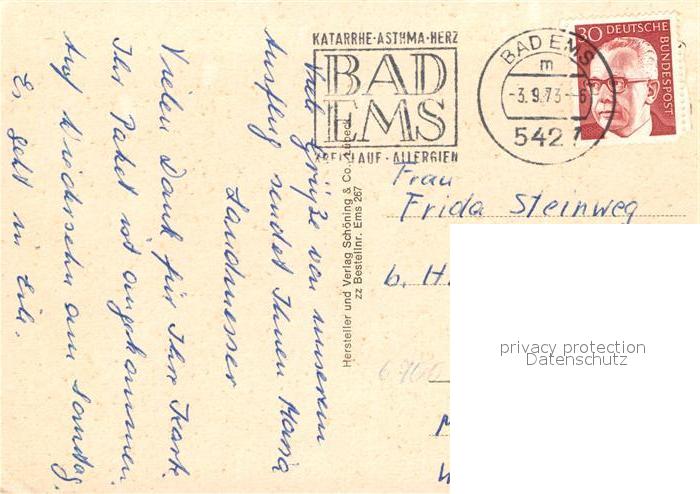 KATARRHE·ASTHMA·HERZ
BAD
EMS
KREISLAUF · ALLERGIEN
BAD EMS
m
-3.9.73--6
5427
30 DEUTSCHE
BUNDESPOST
Viele Grüße von unserem
Ausflug sendet Ihnen Maria
Landmesser
Vielen Dank für Ihre Karte.
Ihr Paket ist angekommen.
Auf Wiedersehn am Sonntag.
Es geht in Eile.
Hersteller und Verlag Schöning & Co., Lübeck
zz Bestellnr. Ems 267
Frau
Frida Steinweg
b. H.
privacy protection
Datenschutz